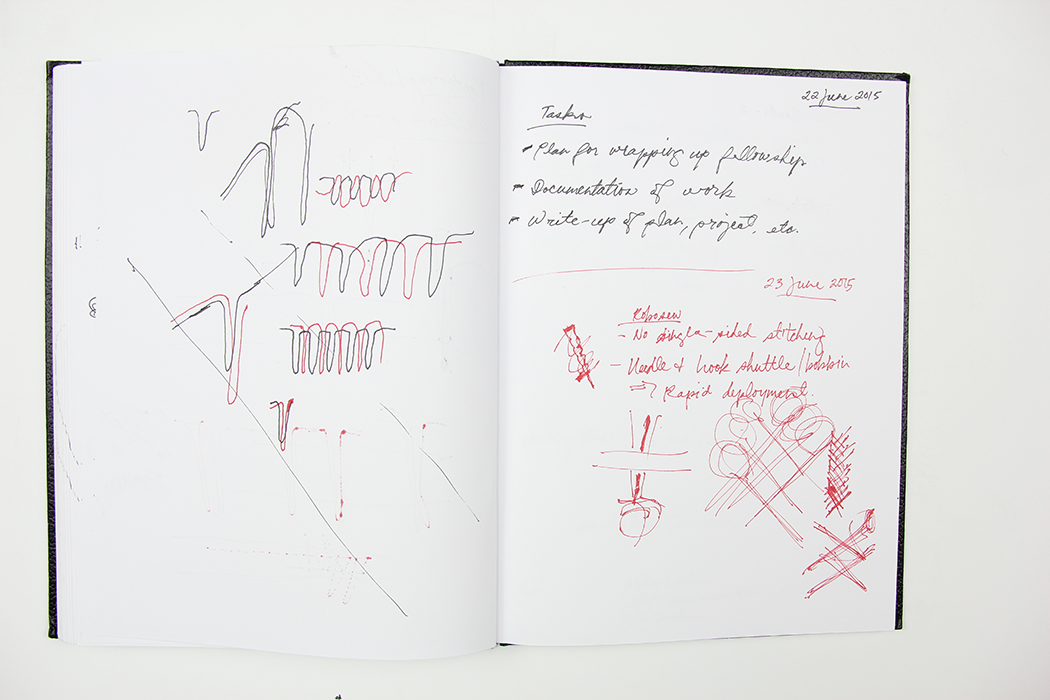 22 June 2015
Tasks
- Plan for wrapping up fellowship
- Documentation of work
- Write-up of plan, project, etc.
23 June 2015
Robosew
- No single-sided stitching
- Needle & hook shuttle/bobbin
⇒ Rapid deployment.